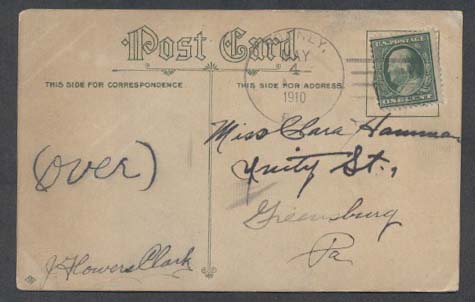 Post Card
THIS SIDE FOR CORRESPONDENCE
THIS SIDE FOR ADDRESS.
MAY
4
1910
U.S. POSTAGE
ONE CENT
Miss Clara Hamman
Unity St.,
Greensburg
Pa
(over)
J Flowers Clark